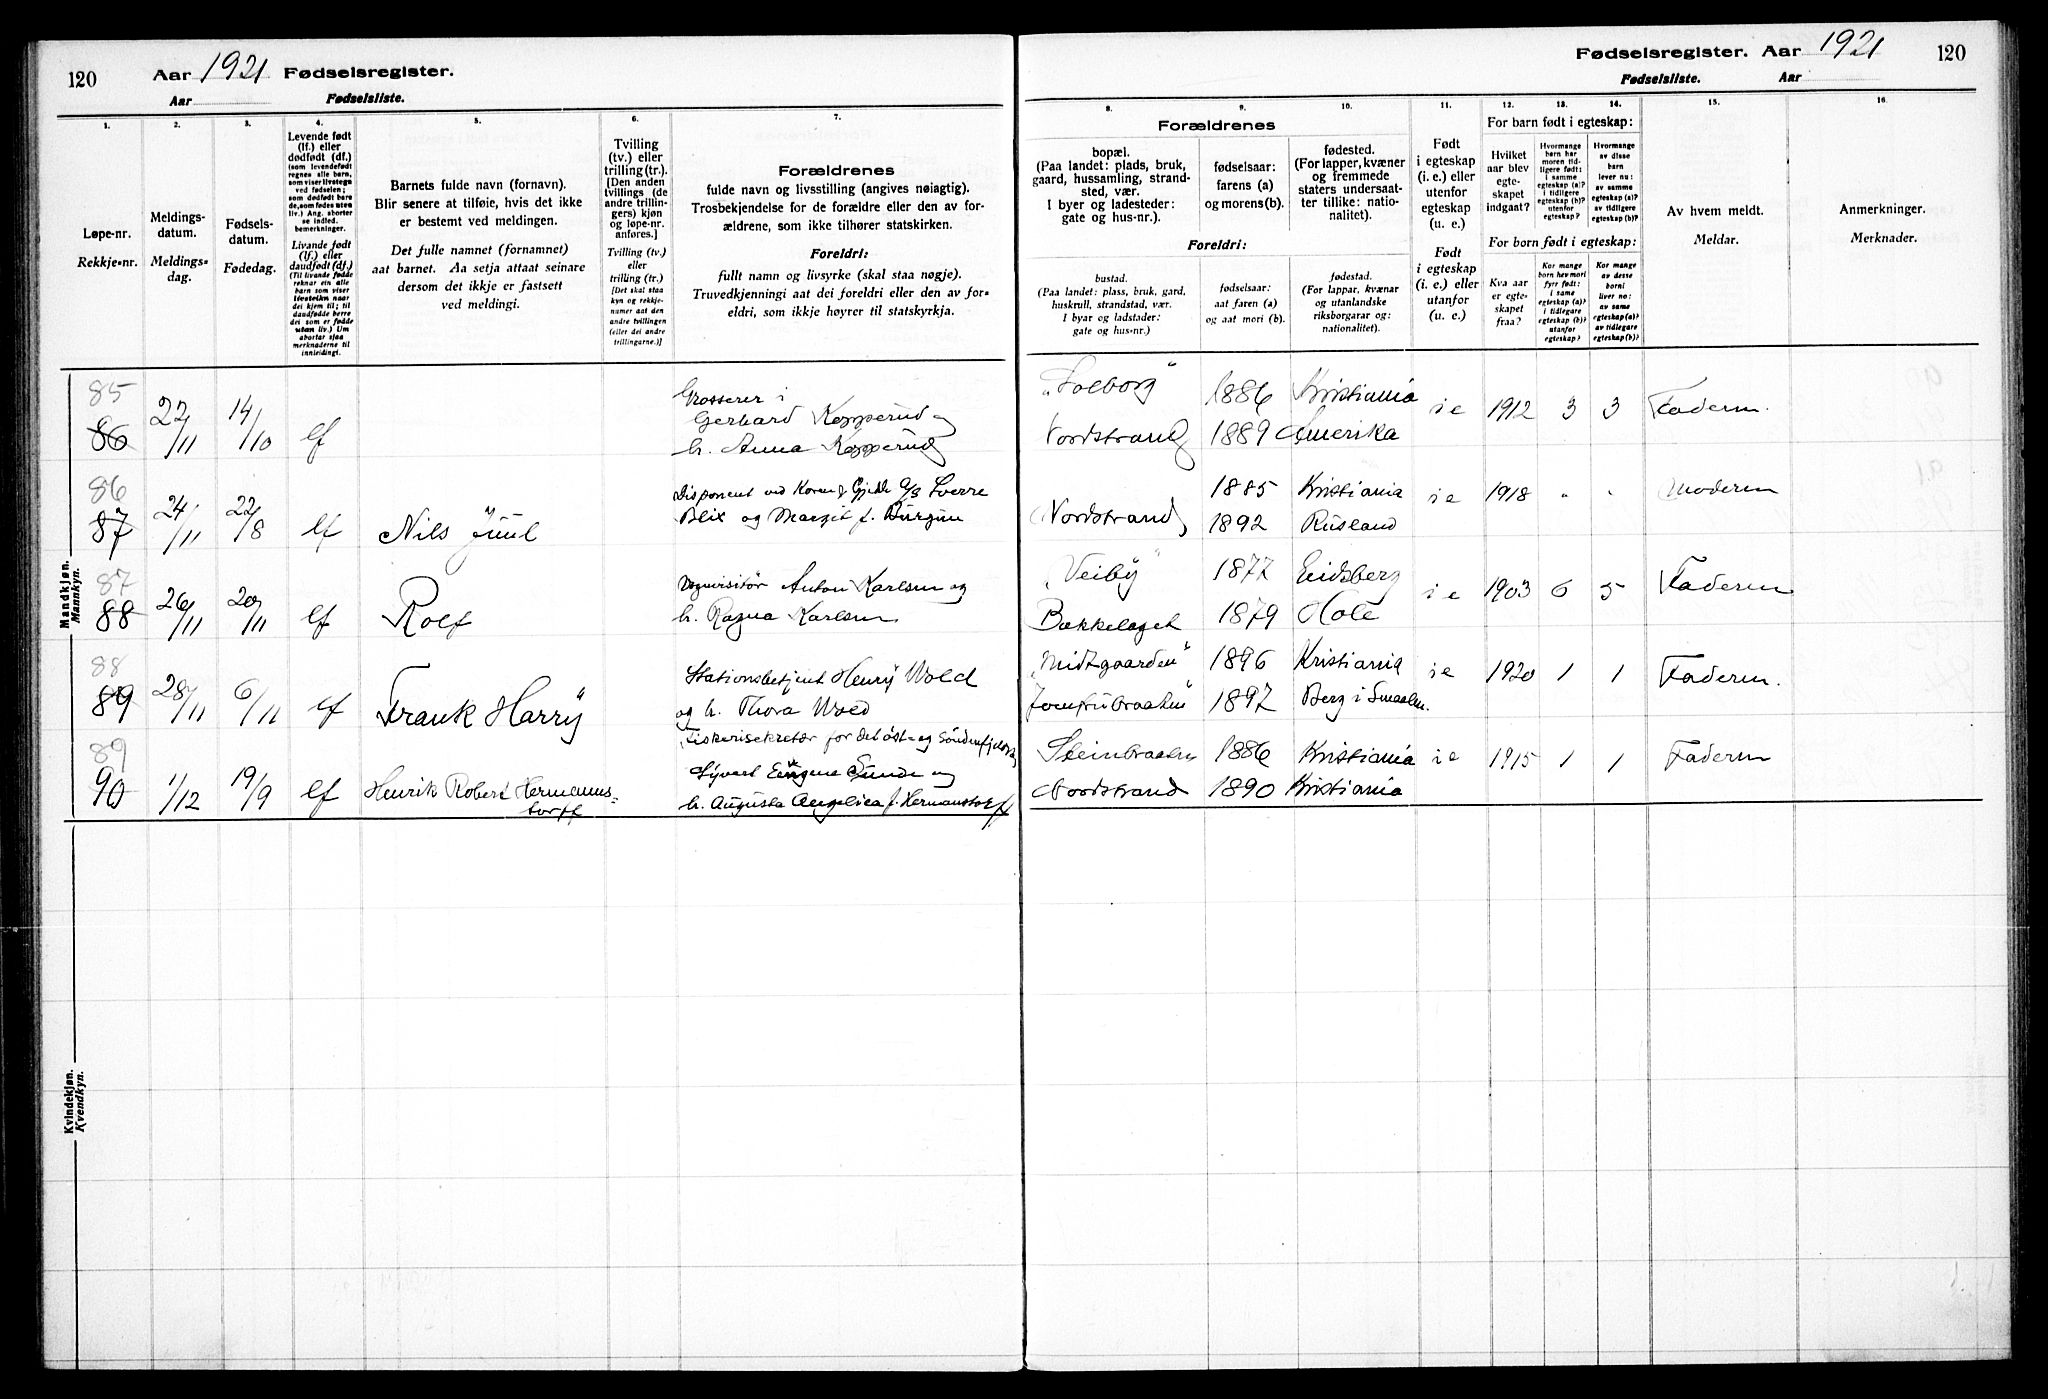 120 Aar 1921 Fødselsregister.
Aar Fødselsliste.
Fødselsregister. Aar 1921 120
Fødselsliste. Aar
1.
Løpe-nr.
Rekkje-nr.
2.
Meldings-
datum.
Meldings-
dag.
3.
Fødsels-
datum.
Fødedag.
4.
Levende født
(lf.) eller
dødfødt (df.)
(som levendefødt
regnes alle barn,
som viser livstegn
ved fødselen;
som dødfødt bare
de, som fødes uten
liv.) Ang. aborter
se indled.
bemerkninger.
Livande født
(lf.) eller
daudfødt (df.)
(Til livande fødde
reknar ein alle
born som viser
livsteikn naar
dei kjem til; til
daudfødde berre
dei som er fødde
utan liv.) Um
abortar sjaa
merknaderne til
innleidingi.
5.
Barnets fulde navn (fornavn).
Blir senere at tilføie, hvis det ikke
er bestemt ved meldingen.
Det fulle namnet (fornamnet)
aat barnet. Aa setja attaat seinare
dersom det ikkje er fastsett
ved meldingi.
6.
Tvilling
(tv.) eller
trilling (tr.).
[Den anden
tvillings (de
andre trillin-
gers) kjøn
og løpe-nr.
anføres.]
Tvilling (tv.)
eller
trilling (tr.)
[Det skal staa
kyn og rekkje-
numer aat den
andre tvillingen
(eller dei andre
trillingarne.)]
7.
Forældrenes
fulde navn og livsstilling (angives nøiagtig).
Trosbekjendelse for de forældre eller den av for-
ældrene, som ikke tilhører statskirken.
Foreldri:
fullt namn og livsyrke (skal staa nøgje).
Truvedkjenningi aat dei foreldri eller den av for-
eldri, som ikkje høyrer til statskyrkja.
8. 9. 10.
Forældrenes
bopæl.
(Paa landet: plads, bruk,
gaard, hussamling, strand-
sted, vær.
I byer og ladesteder:
gate og hus-nr.).
fødselsaar:
farens (a)
og morens (b).
fødested.
(For lapper, kvæner
og fremmede
staters undersaat-
ter tillike: natio-
nalitet).
Foreldri:
bustad.
(Paa landet: plass, bruk, gard,
huskrull, strandstad, vær.
I byar og ladstader:
gate og hus-nr.)
fødselsaar:
aat faren (a)
og aat mori (b).
fødestad.
(For lappar, kvænar
og utanlandske
riksborgarar og:
nationalitet).
11.
Født
i egteskap
(i. e.) eller
utenfor
egteskap
(u. e.)
Født
i egteskap
(i. e.) eller
utanfor
(u. e.)
12. 13. 14.
For barn født i egteskap:
Hvilket
aar blev
egte-
skapet
indgaat?
Hvormange
barn har
moren tid-
ligere født:
i samme
egteskap (a)?
i tidligere
egteskap (b)?
utenfor
egteskap?
Hvormange
av disse
barn
lever nu:
av samme
egteskap (a)?
av tidligere
egteskap (b)?
For born født i egteskap:
Kva aar
er egte-
skapet
fraa?
Kor mange
born hev mori
fyrr født:
i same
egteskap (a)?
i tidlegare
egteskap (b)?
utanfor
egteskap?
Kor mange
av desse
borni
liver no:
av same
egteskap (a)?
av tidlegare
egteskap (b)?
15.
Av hvem meldt.
Meldar.
16.
Anmerkninger.
Merknader.
Mandkjøn.
Mannkyn.
85
86 22/11 14/10 lf
Grosserer i
Gerhard Kopperud og
h. Anna Kopperud
"Solborg"
Nordstrand
1886 Kristiania
1889 Amerika
i e 1912 3 3 Faderen.
86
87 24/11 22/8 lf Nils Juul
Disponent ved Koren & Gjekle A/S Sverre
Blix og Margit f. Burgun
Nordstrand
1885 Kristiania
1892 Rusland
i e 1918 " " Moderen
87
88 26/11 20/11 lf Rolf
Anton Karlsen og
h. Ragna Karlsen
"Veiby"
Bækkelaget
1877 Eidsberg
1879 Hole
i e 1903 6 5 Faderen
88
89 28/11 6/11 lf Frank Harry
Stationsbetjent Henry Wold
og h. Thora Wold
"Midtgaarden"
Jomfrubraaten"
1896 Kristiania
1897 Berg i Smaalen.
i e 1920 1 1 Faderen.
89
90 1/12 19/9 lf Henrik Robert Hermanns-
torff
Fiskerisekretær for det öst- og Söndenfjeldske
Syvert Eugene Sunde og
h. Augusta Angelica f. Hermanstorff
Steinbraaten
Nordstrand
1886 Kristiania
1890 Kristiania
i e 1915 1 1 Faderen
Kvindekjøn.
Kvendkyn.